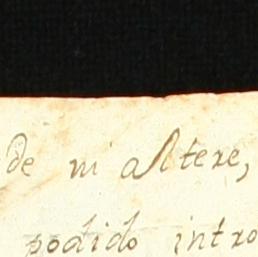 de ni altere,
podido intro